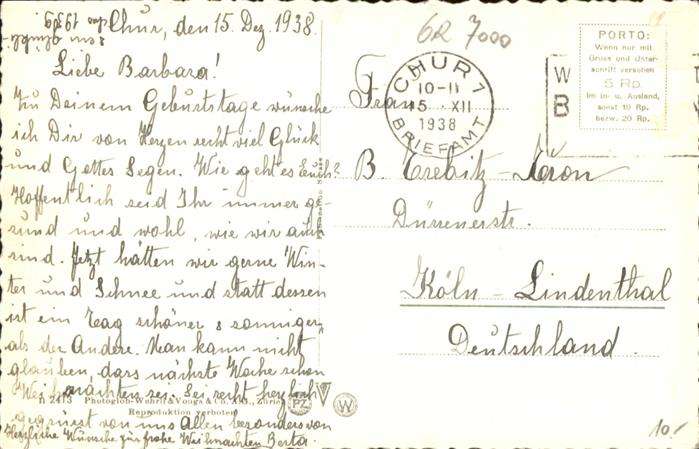 Chur, den 15. Dez. 1938.
Liebe Barbara!
Zu Deinem Geburtstage wünsche
ich Dir von Herzen recht viel Glück
und Gottes Segen. Wie geht es Euch?
Hoffentlich seid Ihr immer ge-
sund und wohl, wie wir auch
sind. Jetzt hätten wir gerne Win-
ter und Schnee und statt dessen
ist ein Tag schöner & sonniger
als der Andere. Man kann nicht
glauben, dass nächste Woche schon
Weihnachten sei. Sei recht herzlich
gegrüsst von uns Allen besonders von
Herzliche Wünsche für frohe Weihnachten Berta.
1939
62 7000
CHUR 1
10-11
15. XII
1938
BRIEFAMT
W
B
PORTO:
Wenn nur mit
Gruss und Unter-
schrift versehen
5 Rp.
im in- u. Ausland,
sonst 10 Rp.
bezw. 20 Rp.
Frau
B. Trebitz-Kron
Dürenerstr.
Köln-Lindenthal
Deutschland.
2413 Photoglob-Wehrli & Vouga & Co. A.G., Zürich
Reproduktion verboten
PZ
W
10.-